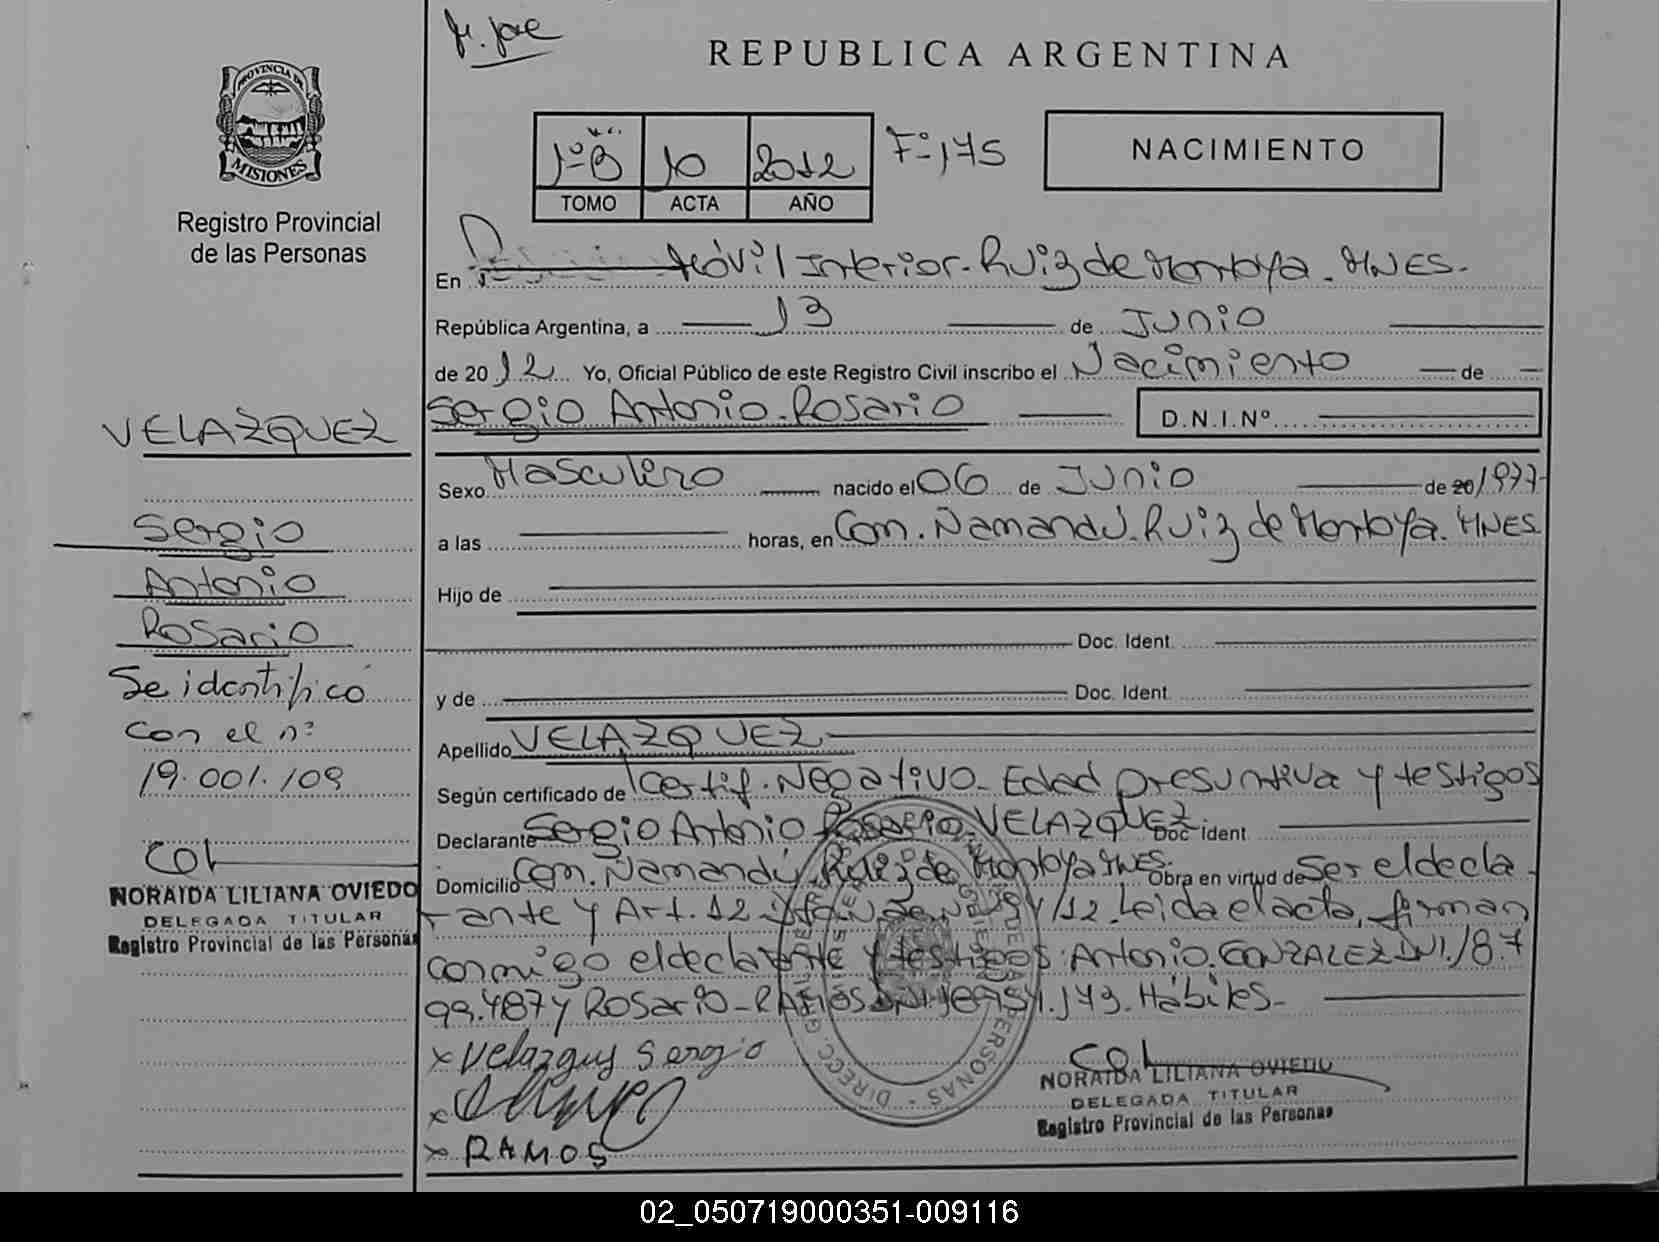 Jr. Jose
REPUBLICA ARGENTINA
PROVINCIA DE
MISIONES
Registro Provincial
de las Personas
1º B 10 2012 Fº 175
TOMO ACTA AÑO
NACIMIENTO
En Móvil Interior. Ruiz de Montoya. MNES.
República Argentina, a 13 de Junio
de 2012 Yo, Oficial Público de este Registro Civil inscribo el Nacimiento de
Sergio Antonio Rosario D.N.I.Nº
VELAZQUEZ
Sergio
Antonio
Rosario
Se identificó
con el nº
19.001.109
NORAIDA LILIANA OVIEDO
DELEGADA TITULAR
Registro Provincial de las Personas
Sexo Masculino nacido el 06 de Junio de 20 1977
a las horas, en Com. Ñamandú. Ruiz de Montoya. MNES.
Hijo de
Doc. Ident.
y de Doc. Ident.
Apellido VELAZQUEZ
Según certificado de Certif. Negativo. Edad presuntiva y testigos
Declarante Sergio Antonio Rosario VELAZQUEZ Doc ident
Domicilio Com. Ñamandú Ruiz de Montoya MNES. Obra en virtud de Ser el decla
rante y Art. 12 /12. Leida el acta, firman
conmigo el declarante y testigos: Antonio GONZALEZ DNI. 18.7
99.487 y Rosario RAMOS DNI. 173. Hábiles.
x Velazquez Sergio
x
x RAMOS
NORAIDA LILIANA OVIEDO
DELEGADA TITULAR
Registro Provincial de las Personas
02_050719000351-009116